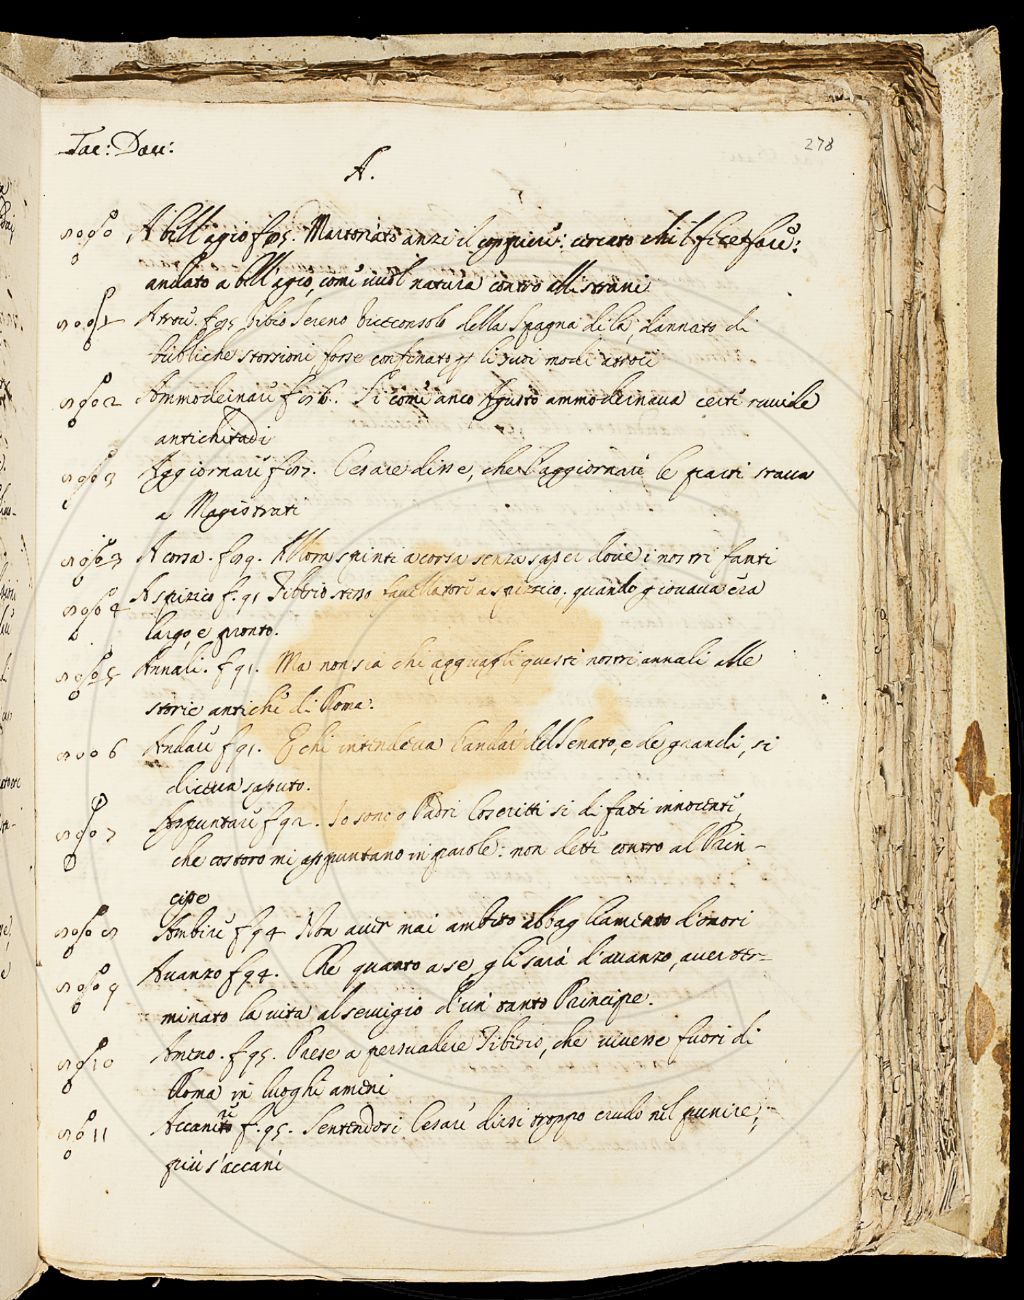 Tac: Dau:
278
A.
A bell'agio f. 85. Martoriato anzi il cuciniere: circato chi l fice fare:
andato a bell'agio, come vuol natura contro alli strani
Atroci. f. 95 Vibio Sereno Viceconsolo della Spagna di là, dannato di
publiche storsioni forse confinato per li suoi modi atroci
Ammodernare f. 86. Si come anco Agusto ammodernava certi ruvide
antichitadi
Aggiornare f. 87. Cesare disse, che l'aggiornare le parti stava
a Magistrati
A corsa. f. 89. Allora spinti a corsa senza saper dove i nostri fanti
A spizico f. 91 Tiberio stesso favellatore a spizzico, quando giovava era
largo, e pronto.
Annali. f. 91. Ma non sia chi agguagli questi nostri annali alle
storie antiche di Roma.
Andare f. 91. E chi intendeva l'andar del Senato, e de grandi, si
diceva saputo.
Appuntare f. 92. Io sono o Padri Coscritti si di fatti innocenti,
che costoro mi appuntano in parole: non detti contro al Prin-
cipe
Ambire f. 94 Non aver mai ambito abbagliamento d'onori
Avanzo f. 94. Che quanto a se, gli sarà d'avanzo, aver ter-
minato la vita al servigio d'un tanto Principe.
Ameno. f. 95. Prese a persuadere Tiberio, che vivesse fuori di
Roma in luoghi ameni
Accanire f. 95. Sentendosi Cesare dirsi troppo crudo nel punire,
più s'accanì